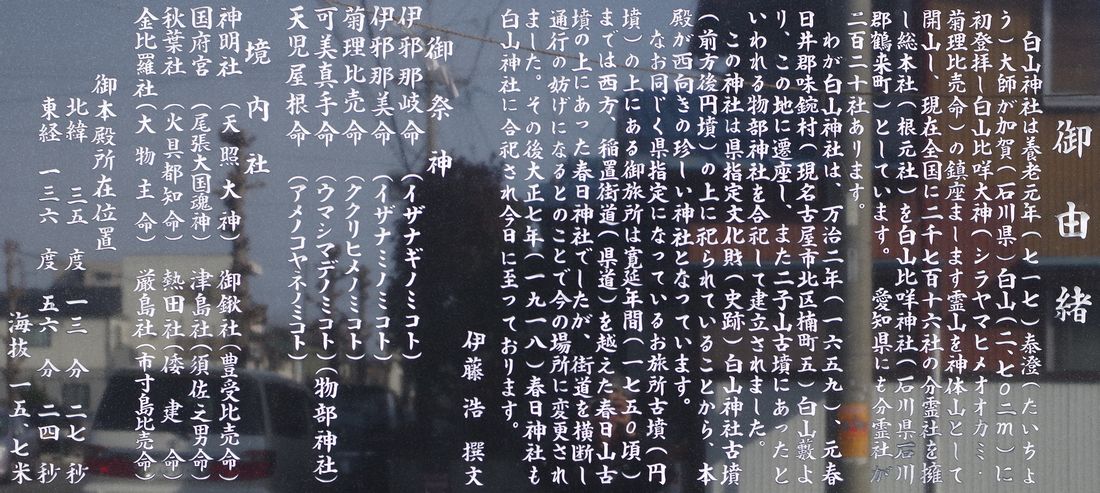 御由緒
白山神社は養老元年（七一七）泰澄（たいちょ
う）大師が加賀（石川県）白山（二、七〇二m）に
初登拝し白山比咩大神（シラヤマヒメオオカミ・
菊理比売命）の鎮座まします霊山を神体山として
開山し、現在全国に二千七百十六社の分霊社を擁
し総本社（根元社）を白山比咩神社（石川県石川
郡鶴来町）としています。　愛知県にも分霊社が
二百二十社あります。
わが白山神社は、万治二年（一六五九）、元春
日井郡味鋺村（現名古屋市北区楠町五）白山藪よ
り、この地に遷座し、また二子山古墳にあったと
いわれる物部神社を合祀して建立されました。
この神社は県指定文化財（史跡）白山神社古墳
（前方後円墳）の上に祀られていることから、本
殿が西向きの珍しい神社となっています。
なお同じく県指定になっているお旅所古墳（円
墳）の上にある御旅所は寛延年間（一七五〇頃）
までは西方、稲置街道（県道）を越えた春日山古
墳の上にあった春日神社でしたが、街道を横断し
通行の妨げになるとのことで今の場所に変更され
ました。その後大正七年（一九一八）春日神社も
白山神社に合祀され今日に至っております。
伊藤　浩　撰文
御祭神
伊邪那岐命　（イザナギノミコト）
伊邪那美命　（イザナミノミコト）
菊理比売命　（ククリヒメノミコト）
可美真手命　（ウマシマデノミコト）（物部神社）
天児屋根命　（アメノコヤネノミコト）
境内社
神明社　（天照大神）　御鍬社（豊受比売命）
国府宮　（尾張大国魂神）　津島社（須佐之男命）
秋葉社　（火具都知命）　熱田社（倭建命）
金比羅社（大物主命）　厳島社（市寸島比売命）
御本殿所在位置
北緯　三五度　一三分　二七秒
東経　一三六度　五六分　二四秒
海抜　一五、七米